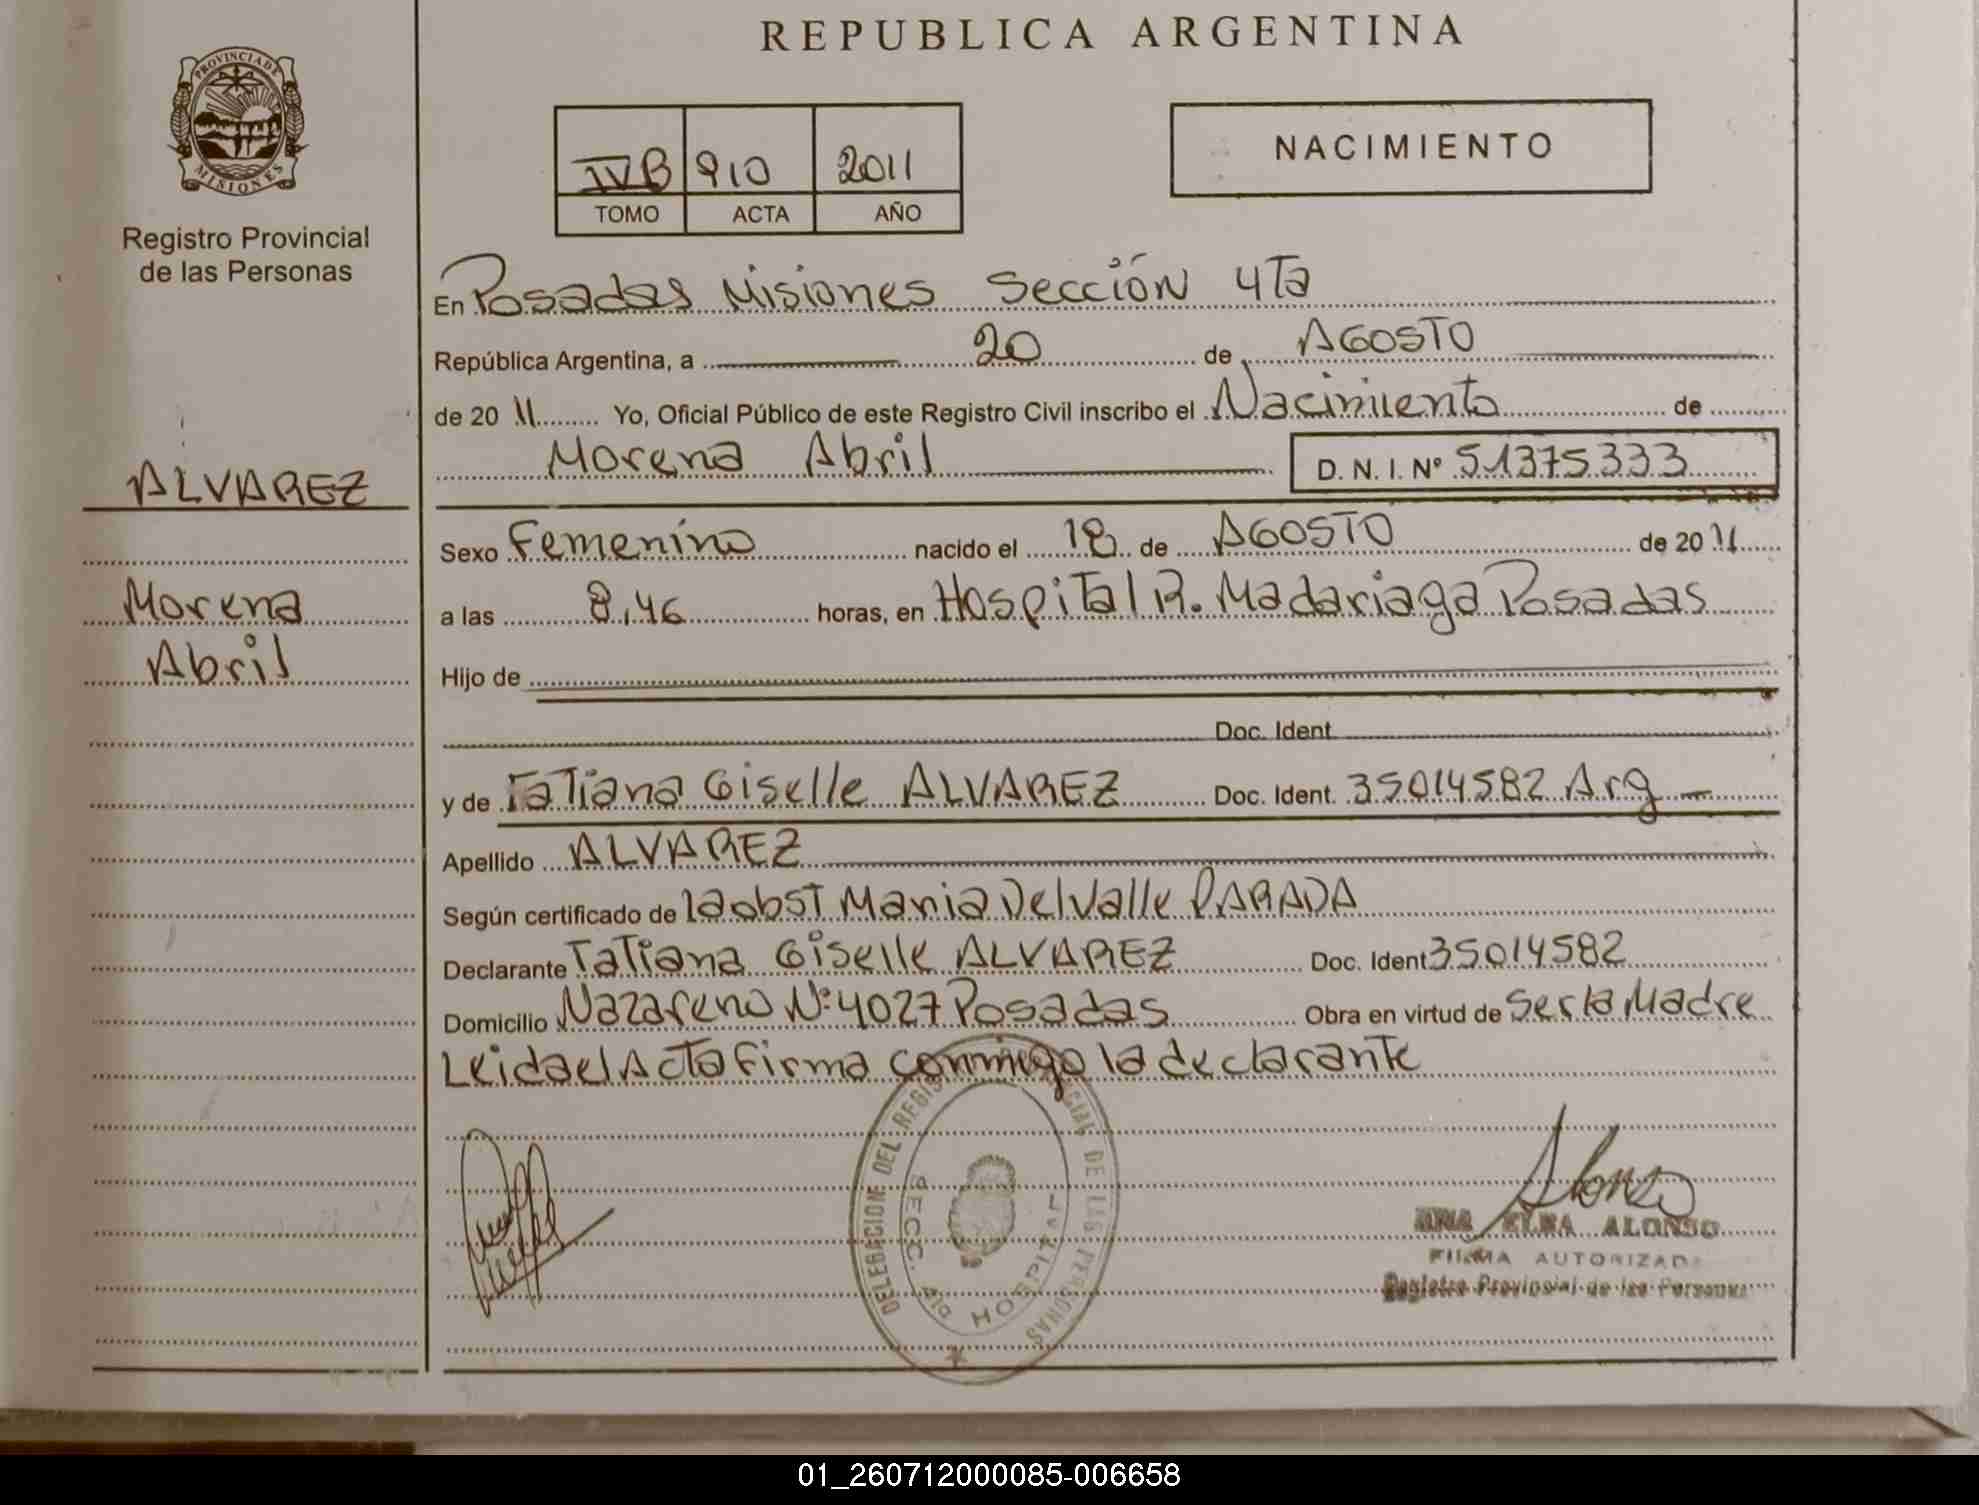 REPUBLICA ARGENTINA
PROVINCIA DE MISIONES
Registro Provincial
de las Personas
IVB 910 2011
TOMO ACTA AÑO
NACIMIENTO
En Posadas Misiones Sección 4Ta
República Argentina, a 20 de AGOSTO
de 2011 Yo, Oficial Público de este Registro Civil inscribo el Nacimiento de
Morena Abril D. N. I. Nº 51375333
ALVAREZ
Morena
Abril
Sexo Femenino nacido el 18 de AGOSTO de 2011
a las 8,46 horas, en Hospital R. Madariaga Posadas
Hijo de
Doc. Ident.
y de Tatiana Giselle ALVAREZ Doc. Ident. 35014582 Arg
Apellido ALVAREZ
Según certificado de la obst Maria Del Valle PARADA
Declarante Tatiana Giselle ALVAREZ Doc. Ident 35014582
Domicilio Nazareno Nº 4027 Posadas Obra en virtud de Ser la Madre
Leida el Acta firma conmigo la declarante
DELEGACION DEL REGISTRO PROVINCIAL DE LAS PERSONAS
SECC. 4ta HOSPITAL
Alonso
ANA ELBA ALONSO
FIRMA AUTORIZADA
Registro Provincial de las Personas
01_260712000085-006658